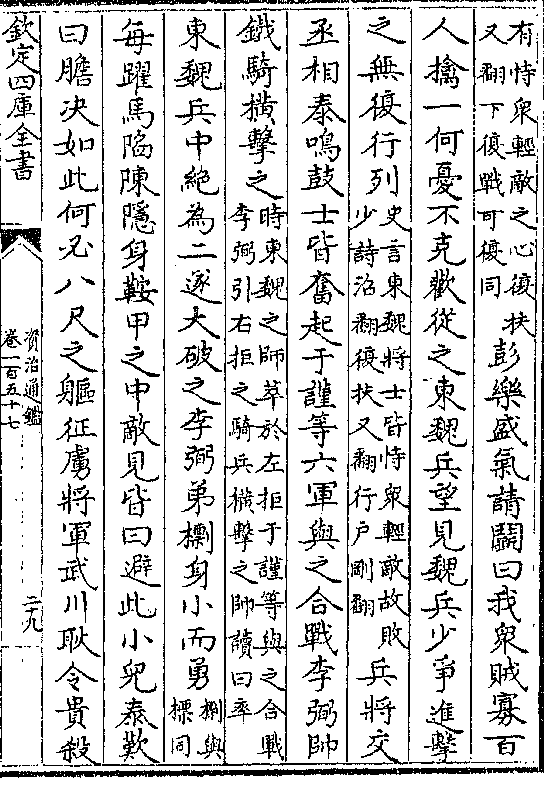 有恃衆輕敵之心復扶
又翻下復戰可復同
彭樂盛氣請鬭曰我衆賊寡百
人擒一何憂不克歡從之東魏兵望見魏兵少爭進擊
之無復行列
史言東魏將士皆恃衆輕敵故敗
少詩沼翻復扶又翻行户剛翻
兵將交
丞相泰鳴鼓士皆奮起于謹等六軍與之合戰李弼帥
鐵騎横擊之
時東魏之師萃於左拒于謹等與之合戰
李弼引右拒之騎兵横擊之帥讀曰率
東魏兵中絶為二遂大破之李弼弟檦身小而勇
檦與
標同
每躍馬陷陳隱身鞍甲之中敵見皆曰避此小兒泰歎
曰膽决如此何必八尺之軀征虜將軍武川耿令貴殺
欽定四庫全書
資治通鑑
卷一百五十七
二九